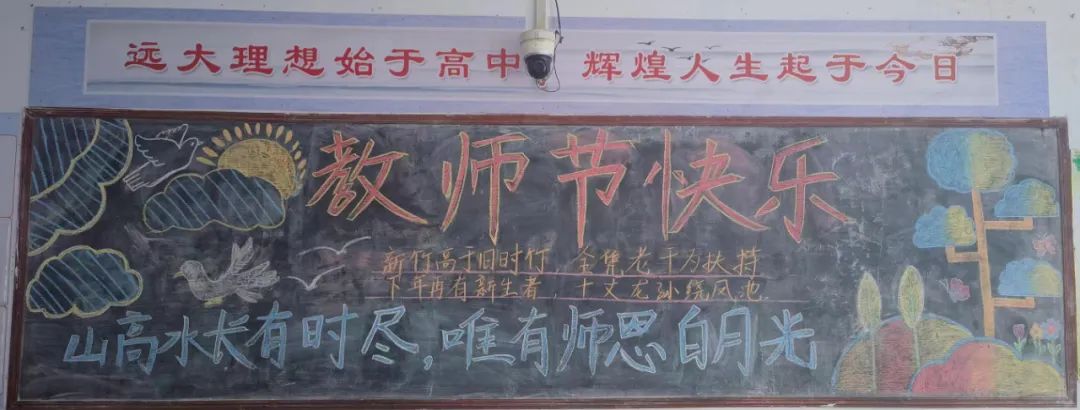 远大理想始于高中 辉煌人生起于今日
教师节快乐
新竹高于旧时竹 全凭老干为扶持
下年再有新生者，十丈龙孙绕凤池
山高水长有时尽，唯有师恩白月光